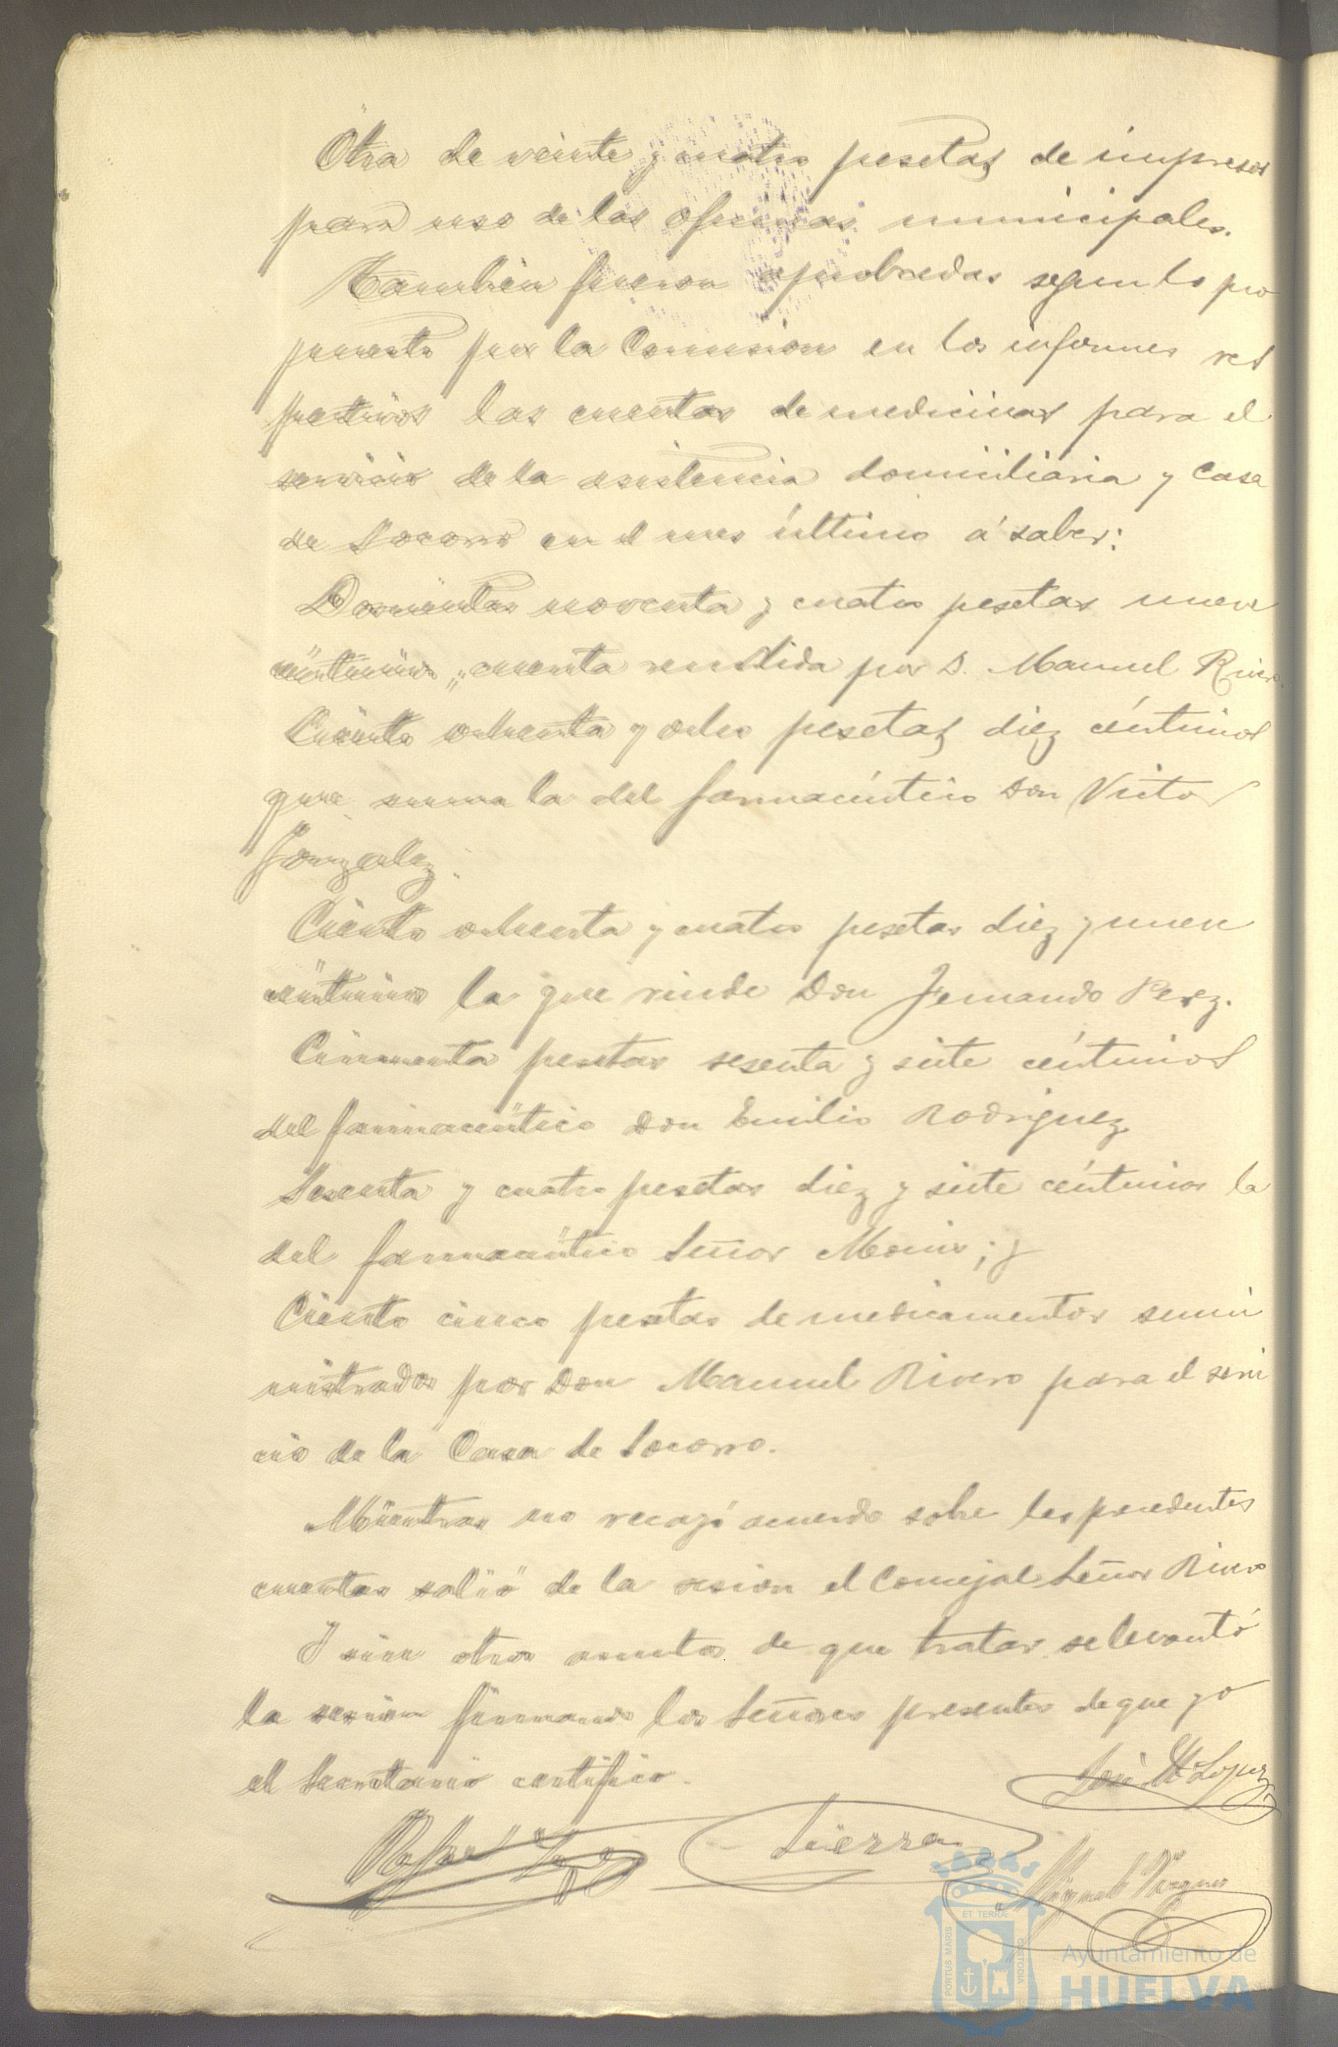 Otra de veinte y cuatro pesetas de impresos
para uso de las oficinas municipales.
Tambien fueron aprobadas segun lo pro
puesto por la Comision en los informes res
pectivos las cuentas de medicinas para el
servicio de la asistencia domiciliaria y casa
de Socorro en el mes último á saber:
Doscientas noventa y cuatro pesetas nueve
céntimos cuenta rendida por D. Manuel Rivero
Ciento ochenta y ocho pesetas diez céntimos
que suma la del farmacéutico Don Victor
Gonzalez.
Ciento ochenta y cuatro pesetas diez y nueve
céntimos la que rinde Don Fernando Perez.
Cincuenta pesetas sesenta y siete céntimos
del farmacéutico Don Emilio Rodriguez
Sesenta y cuatro pesetas diez y siete céntimos la
del farmacéutico Señor ; y
Ciento cinco pesetas de medicamentos sumi
nistrados por Don Manuel Rivero para el servi
cio de la Casa de Socorro.
Mientras no recayó acuerdo sobre las precedentes
cuentas salió de la sesion el Concejal Señor Rivero
Y sin otros asuntos de que tratar se levantó
la sesion firmando los Señores presentes de que yo
el Secretario certifico.
José M López
Rafael
Sierra
Miguel Vazquez
PORTUS MARIS
ET TERRAE
CUSTODIA
Ayuntamiento de
HUELVA